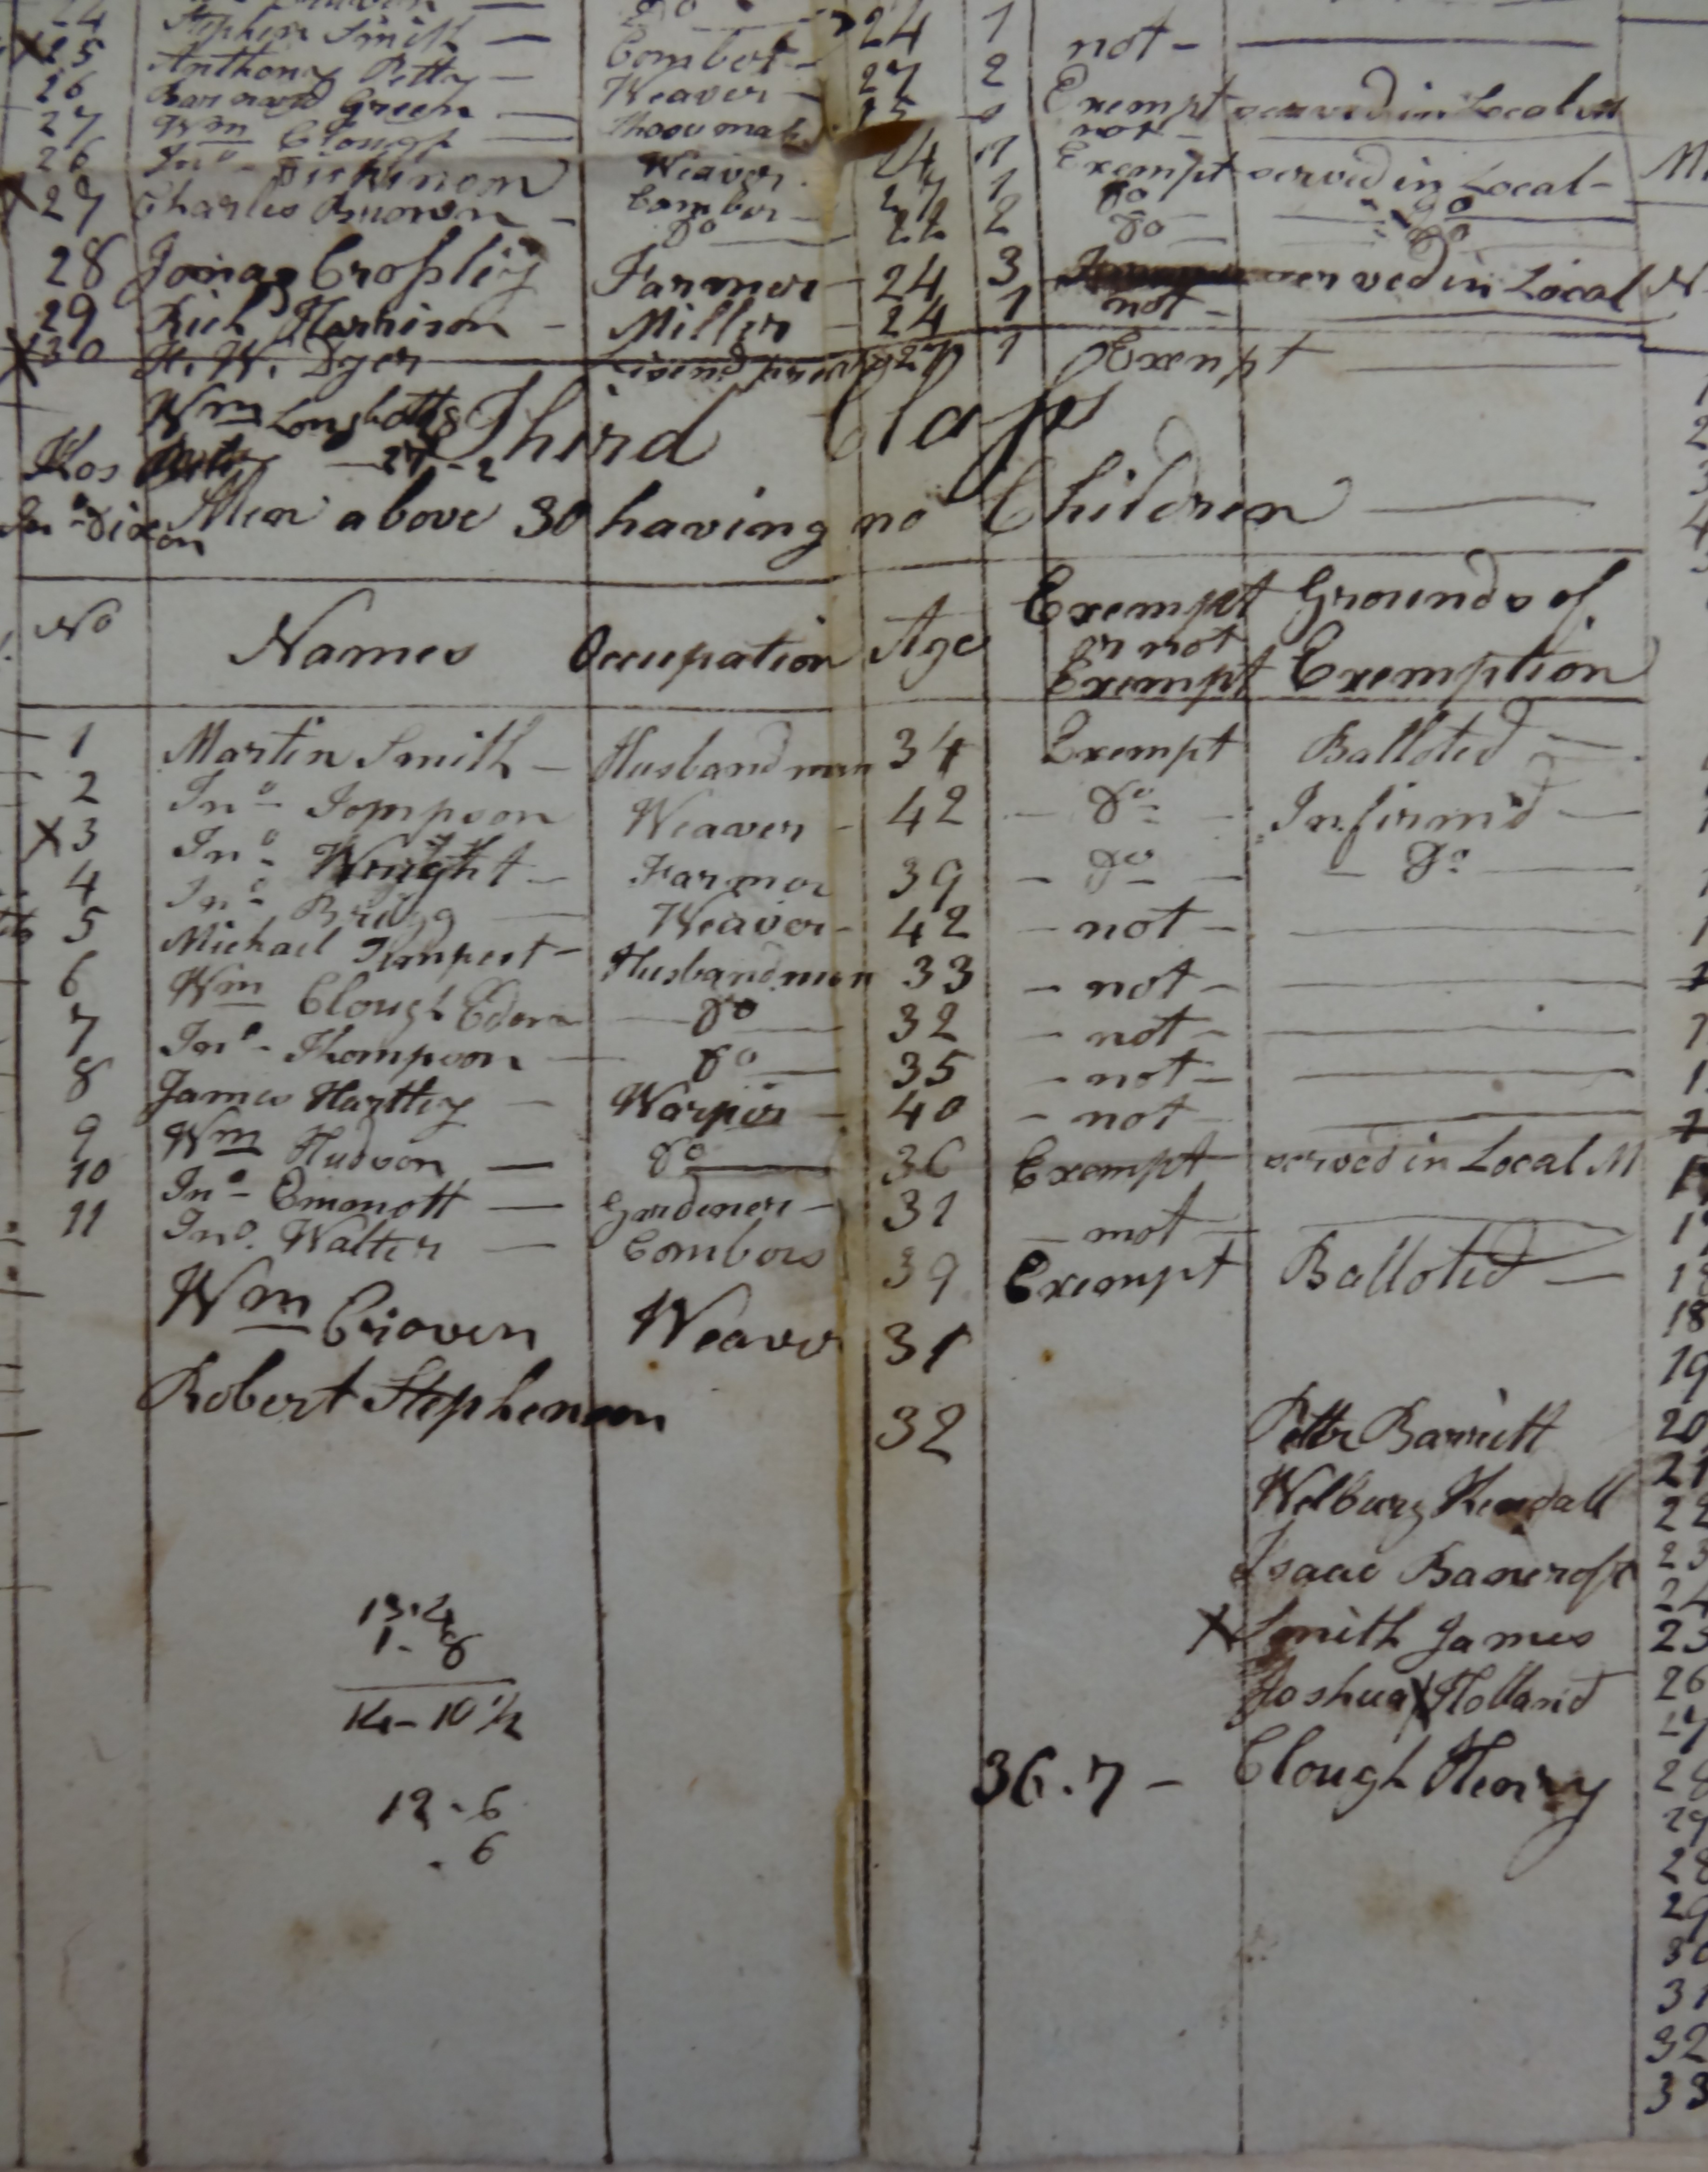 24 Do 24 1
25 Stephen Smith — Comber — 27 2 not —
26 Anthony Petty — Weaver
27 Barnard Green — Exempt served in Local M
26 Wm Clough — Shoemak not —
27 Jno - Dickinson Weaver 24 1 Exempt served in Local —
Charles Brown — Comber — 27 1 Do Do
Do 22 2 Do — Do
28 Jonas Cropley Farmer — 24 3 served in Local
29 Rich Harrison — Miller — 24 1 not —
X30 H. W. Dyer 27 1 Exempt —
Wm Longbottg
Third Class
27 - 2
Jno Dixon
Men above 30 having no Children —
No Names Occupation Age Exempt or not Exempt Grounds of Exemption
1 Martin Smith — Husbandman 34 Exempt Balloted —
2 Jno - Jompson Weaver — 42 — Do — Infirm'd —
X3 Jno - Wright — Farmer 39 — Do — — Do —
4 Jno - Brigg — Weaver — 42 — not —
5 Michael Tempest — Husbandman 33 — not —
6 Wm Clough Edom — Do — 32 — not —
7 Jno - Thompson — Do — 35 — not —
8 James Hartley — Warper — 40 — not —
9 Wm Hudson — Do — 36 Exempt served in Local M
10 Jno - Emmott — Gardener — 31 — not —
11 Jno. Walter — Combers 39 Exempt Balloted —
Wm Craven Weaver 31
Robert Stephenson 32
Peter Barritt
Welbury Kendall
Isaac Bancroft
X Smith James
Joshua X Holland
36.7 — Clough Henry
14 - 10 1/2
12 . 6
. 6
18
18
19
20
21
22
23
24
25
26
27
28
29
28
29
30
31
32
33